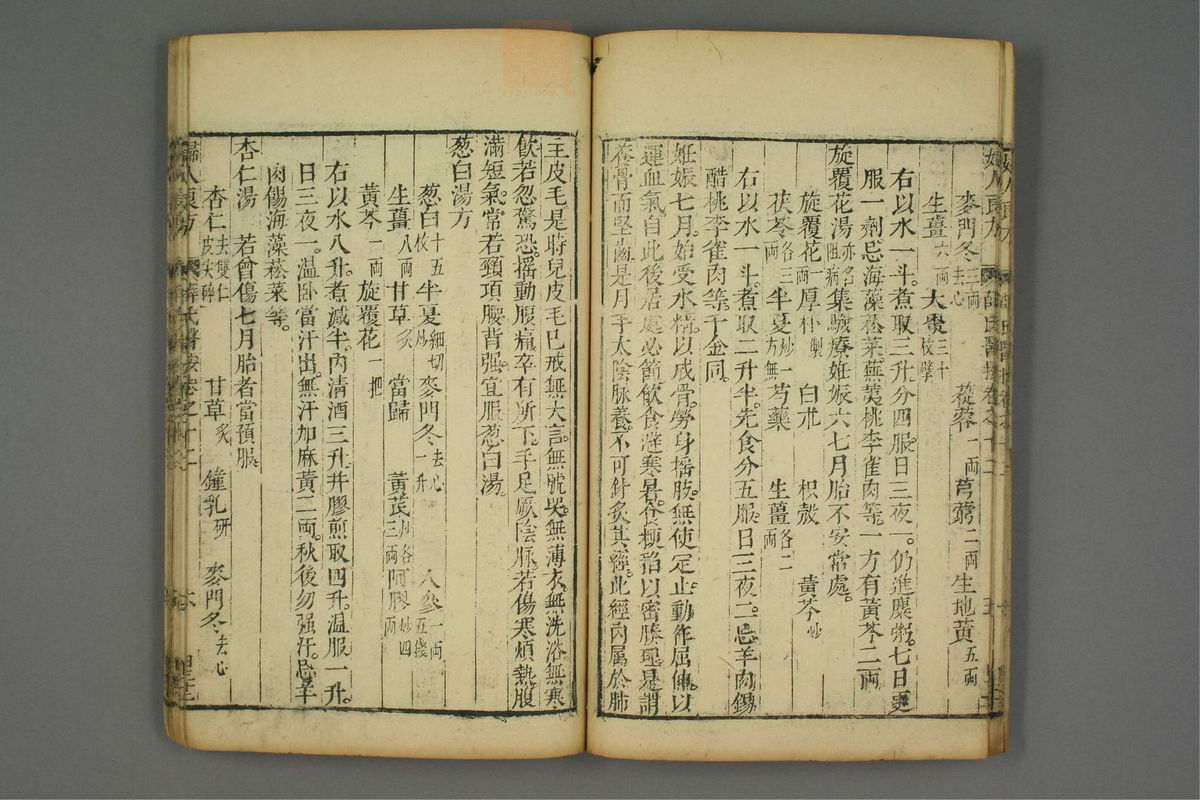 麥門冬三兩去心
生薑六兩 大棗三十枚擘 蓯蓉一兩 芎藭二兩 生地黃五兩
右以水一斗煮取三升分四服日三夜一仍進糜粥七日更
服一劑忌海藻菘菜蕪荑桃李雀肉等一方有黃芩二兩
旋覆花湯亦名阻病集驗療妊娠六七月胎不安常處
旋覆花一兩 厚朴製 白朮 枳殼 黃芩炒
茯苓各三兩 半夏炒一方無 芍藥 生薑各二兩
右以水一斗煮取二升半先食分五服日三夜二忌羊肉餳
醋桃李雀肉等千金同
妊娠七月始受水精以成骨勞身搖肢無使定止動作屈伸以
運血氣自此後居處必節飲食避寒暑令梗稻以密腠理是謂
養骨而堅齒是月手太陰脉養不可針炙其經此經內屬於肺
主皮毛是時兒皮毛已成無大言無號哭無薄衣無洗浴無寒
飲若忽驚恐搖動腹痛卒有所下手足厥陰脉若傷寒煩熱腹
滿短氣常若頸項腰背强宜服葱白湯
葱白湯方
葱白十五枚 半夏細切炒 麥門冬去心一升 人參一兩五錢
生薑八兩 甘草炙 當歸 黃芪炒各三兩 阿膠炒四兩
黃芩一兩 旋覆花一把
右以水八升煮減半內清酒三升并膠煎取四升温服一升
日三夜一温卧當汗出無汗加麻黃二兩秋後勿强汗忌羊
肉餳海藻菘菜等
杏仁湯 若曾傷七月胎者當預服
杏仁去雙仁皮尖碎 甘草炙 鐘乳研 麥門冬去心
婦人良方 薛氏醫按卷之十二 六